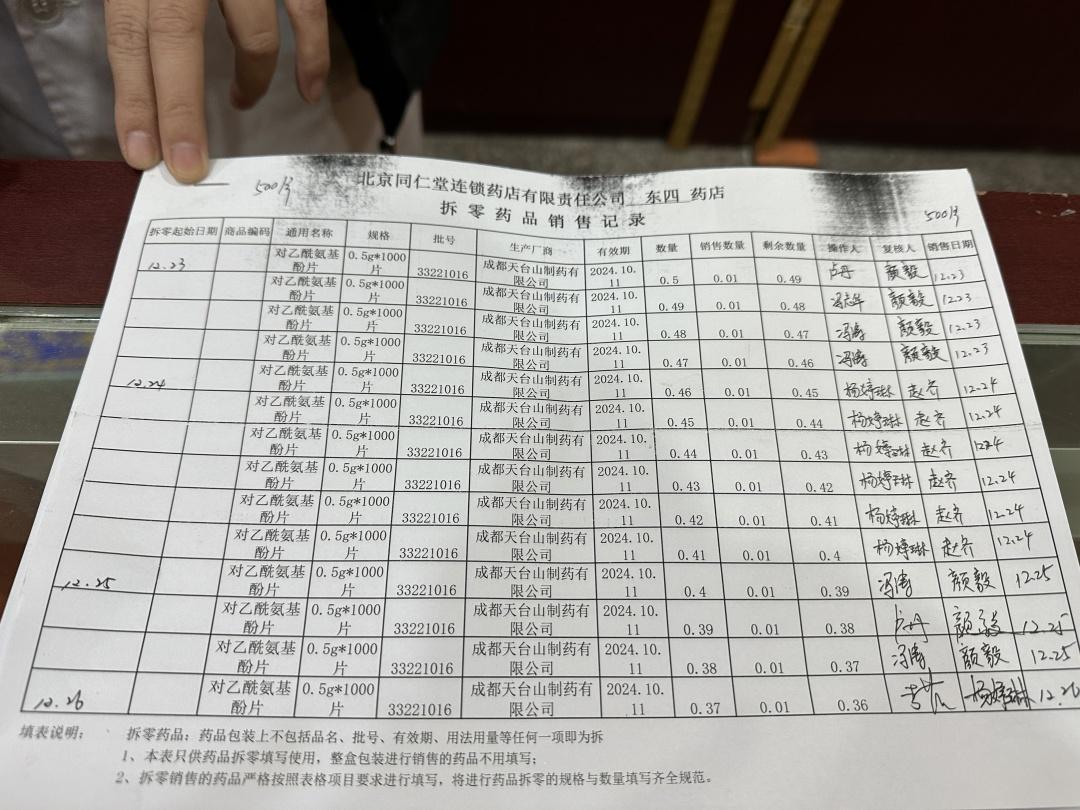 北京同仁堂连锁药店有限责任公司 东四 药店
拆零药品销售记录
拆零起始日期 商品编码 通用名称 规格 批号 生产厂商 有效期 数量 销售数量 剩余数量 操作人 复核人 销售日期
12.23 对乙酰氨基酚片 0.5g*1000片 33221016 成都天台山制药有限公司 2024.10.11 0.5 0.01 0.49 卢丹 颜毅 12.23
对乙酰氨基酚片 0.5g*1000片 33221016 成都天台山制药有限公司 2024.10.11 0.49 0.01 0.48 颜毅 12.23
对乙酰氨基酚片 0.5g*1000片 33221016 成都天台山制药有限公司 2024.10.11 0.48 0.01 0.47 冯涛 颜毅 12.23
对乙酰氨基酚片 0.5g*1000片 33221016 成都天台山制药有限公司 2024.10.11 0.47 0.01 0.46 冯涛 颜毅 12.23
12.24 对乙酰氨基酚片 0.5g*1000片 33221016 成都天台山制药有限公司 2024.10.11 0.46 0.01 0.45 杨婷琳 赵齐 12.24
对乙酰氨基酚片 0.5g*1000片 33221016 成都天台山制药有限公司 2024.10.11 0.45 0.01 0.44 杨婷琳 赵齐 12.24
对乙酰氨基酚片 0.5g*1000片 33221016 成都天台山制药有限公司 2024.10.11 0.44 0.01 0.43 杨婷琳 赵齐 12.24
对乙酰氨基酚片 0.5g*1000片 33221016 成都天台山制药有限公司 2024.10.11 0.43 0.01 0.42 杨婷琳 赵齐 12.24
对乙酰氨基酚片 0.5g*1000片 33221016 成都天台山制药有限公司 2024.10.11 0.42 0.01 0.41 杨婷琳 赵齐 12.24
对乙酰氨基酚片 0.5g*1000片 33221016 成都天台山制药有限公司 2024.10.11 0.41 0.01 0.4 杨婷琳 赵齐 12.24
12.25 对乙酰氨基酚片 0.5g*1000片 33221016 成都天台山制药有限公司 2024.10.11 0.4 0.01 0.39 冯涛 颜毅 12.25
对乙酰氨基酚片 0.5g*1000片 33221016 成都天台山制药有限公司 2024.10.11 0.39 0.01 0.38 卢丹 颜毅 12.25
对乙酰氨基酚片 0.5g*1000片 33221016 成都天台山制药有限公司 2024.10.11 0.38 0.01 0.37 冯涛 颜毅 12.25
12.26 对乙酰氨基酚片 0.5g*1000片 33221016 成都天台山制药有限公司 2024.10.11 0.37 0.01 0.36 杨婷琳 12.26
填表说明： 拆零药品：药品包装上不包括品名、批号、有效期、用法用量等任何一项即为拆
1、本表只供药品拆零填写使用，整盒包装进行销售的药品不用填写；
2、拆零销售的药品严格按照表格项目要求进行填写，将进行药品拆零的规格与数量填写齐全规范。